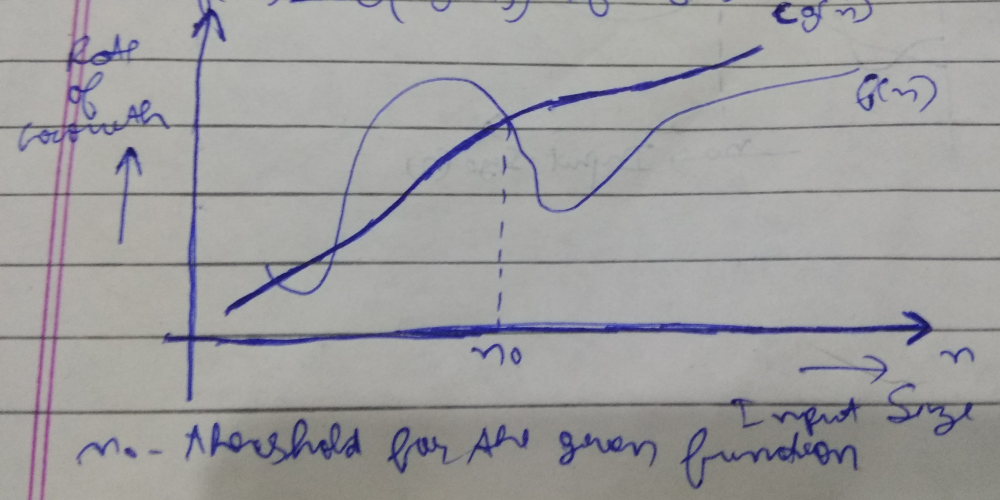 cg(n)
Rate
of
Growth
f(n)
n₀
n
Input Size
n₀ - threshold for the given function